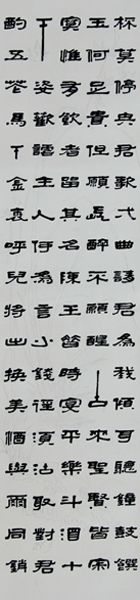 杯莫停與君歌弌曲請君為耳聽鐘鼓饌
玉何足貴但願長醉不願醒古來聖賢皆寂
寞惟有飲者留其名陳王昔時宴平樂斗酒十
千恣歡謔主人何為言少錢徑須沽取對君
酌五花馬千金裘呼兒將出換美酒與爾同銷